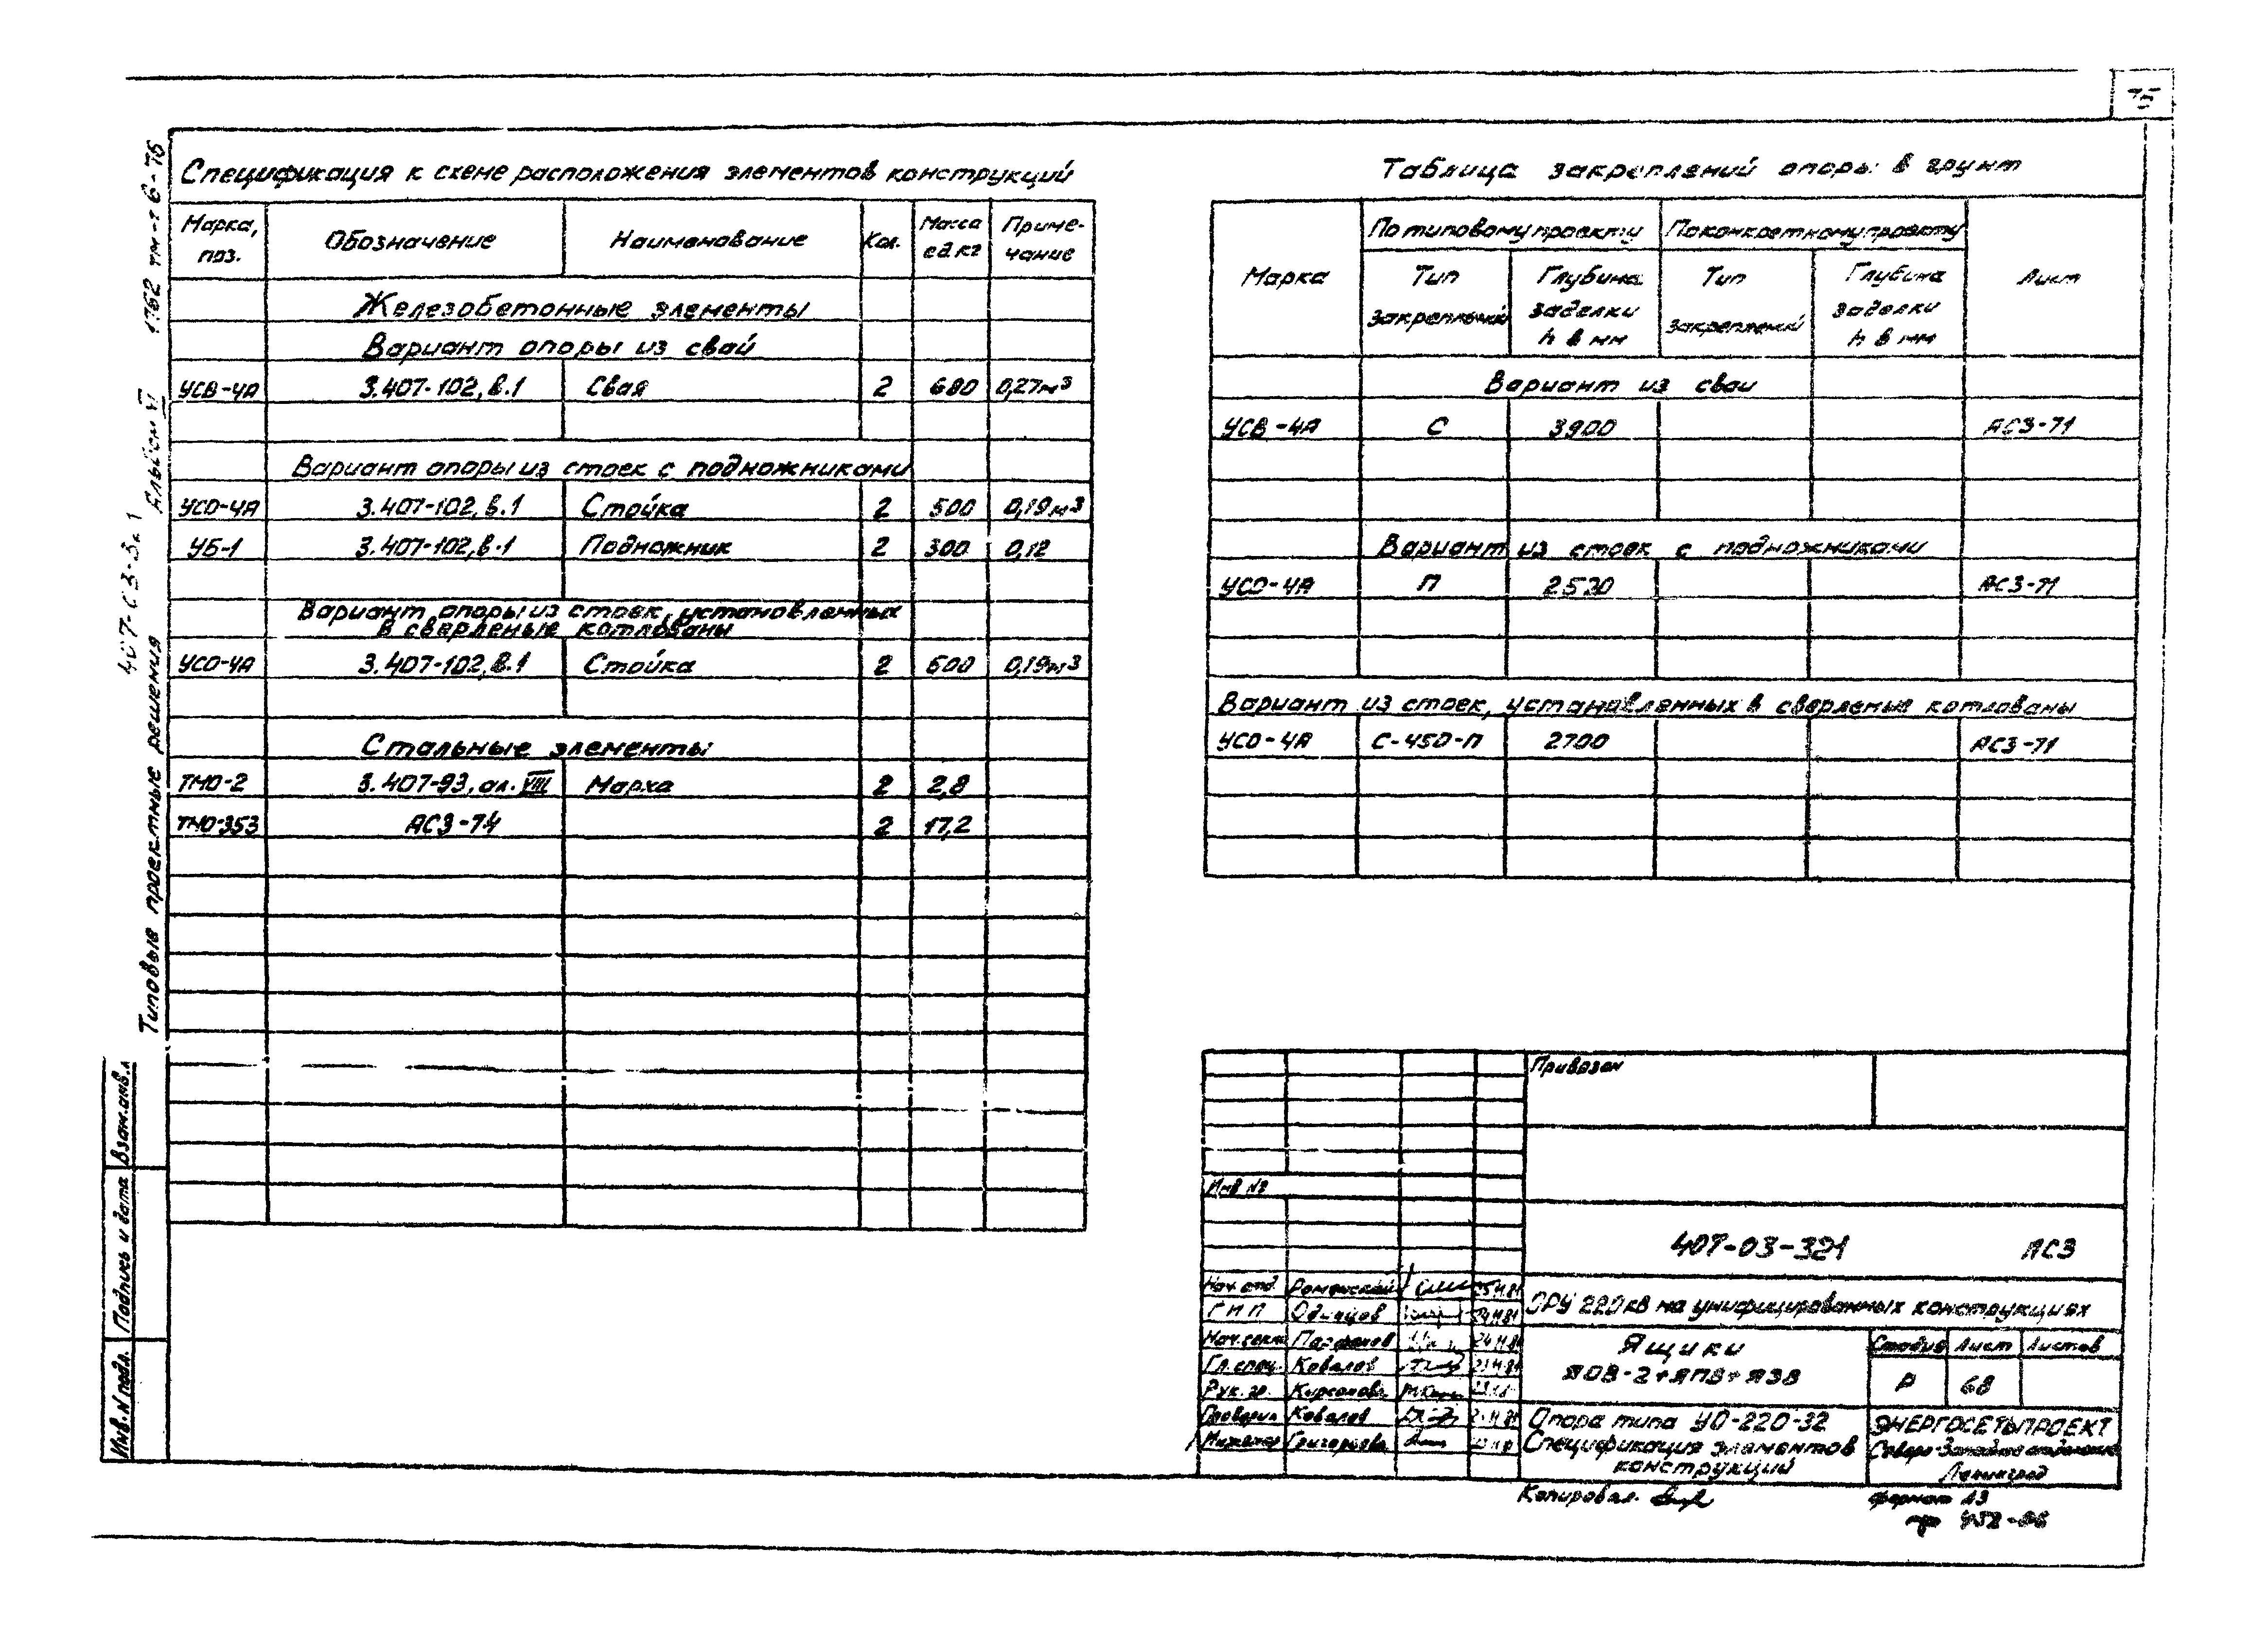 75
Спецификация к схеме расположения элементов конструкций
Марка, поз. Обозначение Наименование Кол. Масса ед кг Приме-чание
Железобетонные элементы
Вариант опоры из свай
УСВ-4А 3.407-102, в.1 Свая 2 680 0,27м³
Вариант опоры из стоек с подножниками
УСО-4А 3.407-102, в.1 Стойка 2 500 0,19м³
УБ-1 3.407-102, в.1 Подножник 2 300 0,12
Вариант опоры из стоек, установленных
в сверленые котлованы
УСО-4А 3.407-102, в.1 Стойка 2 500 0,19м³
Стальные элементы
ТМО-2 3.407-93, ал. VIII Марка 2 2,8
ТМО-353 АС3-74 2 17,2
Таблица закреплений опоры в грунт
Марка По типовому проекту По конкретному проекту Лист
Тип закреплений Глубина заделки h в мм Тип закреплений Глубина заделки h в мм
Вариант из сваи
УСВ-4А С 3900 АС3-71
Вариант из стоек с подножниками
УСО-4А П 2520 АС3-71
Вариант из стоек, установленных в сверленые котлованы
УСО-4А С-450-П 2700 АС3-71
Типовые проектные решения
Альбом VI
1762 тм-т 6-76
Взам.инв.
Подпись и дата
Инв. N подл.
Привязан
Инв №
407-03-321 АС3
Нач отд. Роменский
ГИП Одинцов
ОРУ 220 кВ на унифицированных конструкциях
Нач.сект Парфенов 24.11.81
Гл.спец. Ковалев
Рук. гр. Кирсанова
Проверил Ковалев
Инженер Григорьева
Ящики
ЯОВ-2+ЯПВ+ЯЗВ
Стадия Лист Листов
Р 68
Опора типа УО-220-32
Спецификация элементов
конструкций
ЭНЕРГОСЕТЬПРОЕКТ
Северо-Западное отделение
Ленинград
Копировал.
формат А3